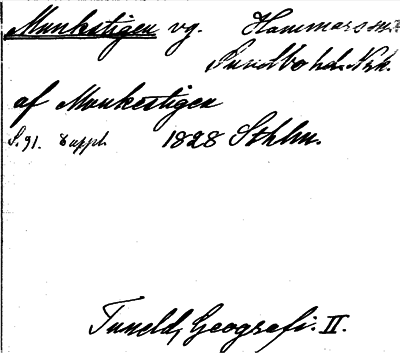 Munkestigen vg. Hammars sn.
Sundbo hd. Nrk.
af Munkestigen
S. 91. 8 uppl. 1828 Sthlm.
Tuneld, Geografi. II.